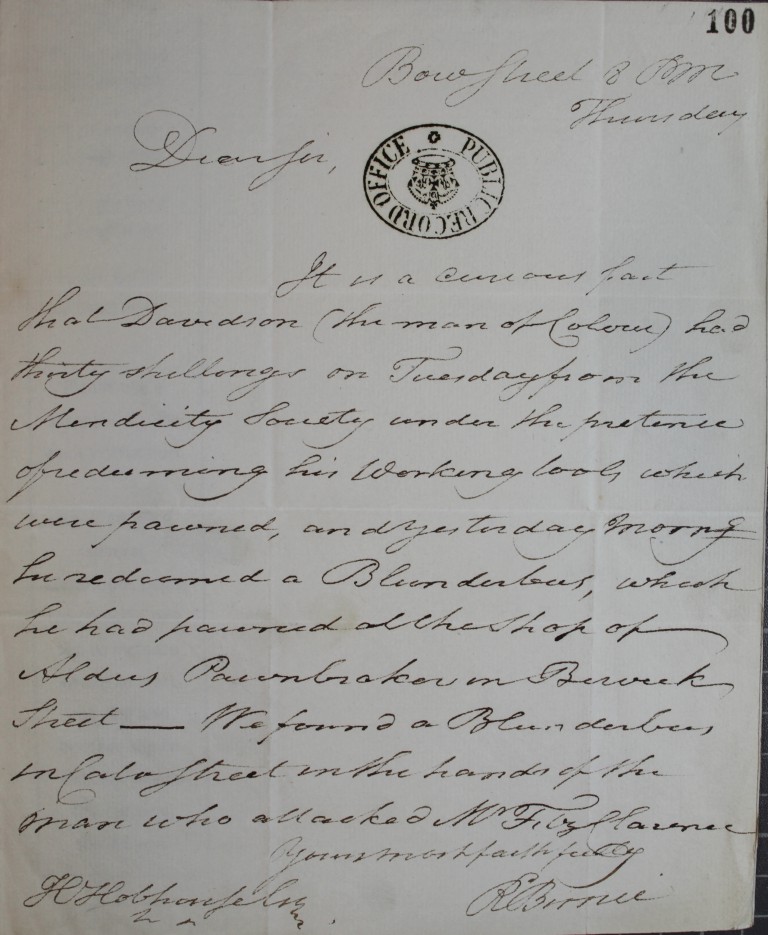 100
Bow Street 8 PM
Thursday
Dear Sir,
PUBLIC RECORD OFFICE
It is a curious fact
that Davidson (the man of Colour) had
thirty shillings on Tuesday from the
Mendicity Society under the pretence
of redeeming his Working tools which
were pawned, and yesterday morng
he redeemed a Blunderbus, which
he had pawned at the Shop of
Aldus Pawnbroker in Berwick
Street — We found a Blunderbus
in Cato Street in the hands of the
man who attacked Mr Fitz Clarence
Yours most faithfully
H Hobhouse Esqr
R Birnie